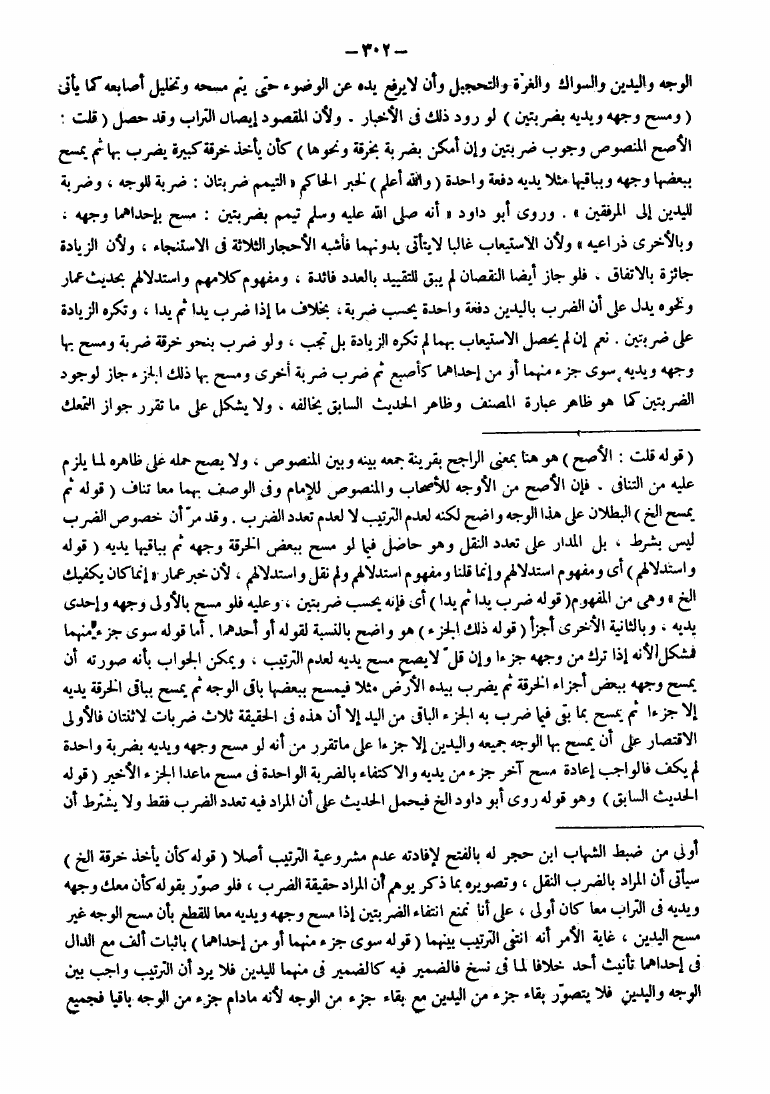 – ٣٠٢ –
الوجه واليدين والسواك والغرّة والتحجيل وأن لايرفع يده عن الوضوء حتى يتم مسحه وتخليل أصابعه كما يأتى
( ومسح وجهه ويديه بضربتين ) لو رود ذلك فى الأخبار . ولأن المقصود إيصال التراب وقد حصل ( قلت :
الأصح المنصوص وجوب ضربتين وإن أمكن بضربة بخرقة ونحوها ) كأن يأخذ خرقة كبيرة يضرب بها ثم يمسح
ببعضها وجهه وبباقيها مثلا يديه دفعة واحدة ( والله أعلم ) لخبر الحاكم « التيمم ضربتان : ضربة للوجه ، وضربة
لليدين إلى المرفقين » . وروى أبو داود « أنه صلى الله عليه وسلم تيمم بضربتين : مسح بإحداهما وجهه ،
وبالأخرى ذراعيه » ولأن الاستيعاب غالبا لايتأتى بدونهما فأشبه الأحجار الثلاثة فى الاستنجاء ، ولأن الزيادة
جائزة بالاتفاق . فلو جاز أيضا النقصان لم يبق للتقييد بالعدد فائدة ، ومفهوم كلامهم واستدلالهم بحديث عمار
ونحوه يدل على أن الضرب باليدين دفعة واحدة يحسب ضربة ، بخلاف ما إذا ضرب يدا ثم يدا ، وتكره الزيادة
على ضربتين . نعم إن لم يحصل الاستيعاب بهما لم تكره الزيادة بل تجب ، ولو ضرب بنحو خرقة ضربة ومسح بها
وجهه ويديه سوى جزء منهما أو من إحداهما كأصبع ثم ضرب ضربة أخرى ومسح بها ذلك الجزء جاز لوجود
الضربتين كما هو ظاهر عبارة المصنف وظاهر الحديث السابق يخالفه ، ولا يشكل على ما تقرر جواز التمعك
( قوله قلت : الأصح ) هو هنا بمعنى الراجح بقرينة جمعه بينه وبين المنصوص ، ولا يصح حمله على ظاهره لما يلزم
عليه من التنافى . فإن الأصح من الأوجه للأصحاب والمنصوص للإمام وفى الوصف بهما معا تناف ( قوله ثم
يمسح الخ ) البطلان على هذا الوجه واضح لكنه لعدم الترتيب لا لعدم تعدد الضرب . وقد مرّ أن خصوص الضرب
ليس بشرط ، بل المدار على تعدد النقل وهو حاصل فيما لو مسح ببعض الخرقة وجهه ثم بباقيها يديه ( قوله
واستدلالهم ) أى ومفهوم استدلالهم وإنما قلنا ومفهوم استدلالهم ولم نقل واستدلالهم ، لأن خبر عمار « إنما كان يكفيك
الخ » وهى من المفهوم ( قوله ضرب يدا ثم يدا ) أى فإنه يحسب ضربتين ، وعليه فلو مسح بالأولى وجهه وإحدى
يديه ، وبالثانية الأخرى أجزأ ( قوله ذلك الجزء ) هو واضح بالنسبة لقوله أو أحدهما . أما قوله سوى جزء منهما
فمشكل لأنه إذا ترك من وجهه جزءا وإن قلّ لايصح مسح يديه لعدم الترتيب ، ويمكن الجواب بأنه صورته أن
يمسح وجهه ببعض أجزاء الخرقة ثم يضرب بيده الأرض مثلا فيمسح ببعضها باقى الوجه ثم يمسح بباقى الخرقة يديه
إلا جزءا ثم يمسح بما بقى فيما ضرب به الجزء الباقى من اليد إلا أن هذه فى الحقيقة ثلاث ضربات لاثنتان فالأولى
الاقتصار على أن يمسح بها الوجه جميعه واليدين إلا جزءا على ماتقرر من أنه لو مسح وجهه ويديه بضربة واحدة
لم يكف فالواجب إعادة مسح آخر جزء من يديه والاكتفاء بالضربة الواحدة فى مسح ماعدا الجزء الأخير ( قوله
الحديث السابق ) وهو قوله روى أبو داود الخ فيحمل الحديث على أن المراد فيه تعدد الضرب فقط ولا يشترط أن
أولى من ضبط الشهاب ابن حجر له بالفتح لإفادته عدم مشروعية الترتيب أصلا ( قوله كأن يأخذ خرقة الخ )
سيأتى أن المراد بالضرب النقل ، وتصويره بما ذكر يوهم أن المراد حقيقة الضرب ، فلو صوّر بقوله كأن معك وجهه
ويديه فى التراب معا كان أولى ، على أنا نمنع انتفاء الضربتين إذا مسح وجهه ويديه معا للقطع بأن مسح الوجه غير
مسح اليدين ، غاية الأمر أنه انتفى الترتيب بينهما ( قوله سوى جزء منهما أو من إحداهما ) باثبات ألف مع الدال
فى إحداهما تأنيث أحد خلافا لما فى نسخ فالضمير فيه كالضمير فى منهما لليدين فلا يرد أن الترتيب واجب بين
الوجه واليدين فلا يتصوّر بقاء جزء من اليدين مع بقاء جزء من الوجه لأنه مادام جزء من الوجه باقيا فجميع